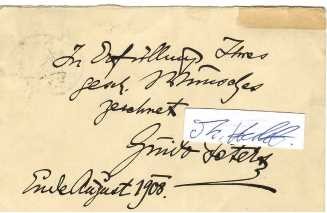 In Erfüllung Ihres
gesch. Wunsches
zeichnet
Guido Peters
Ende August 1908.